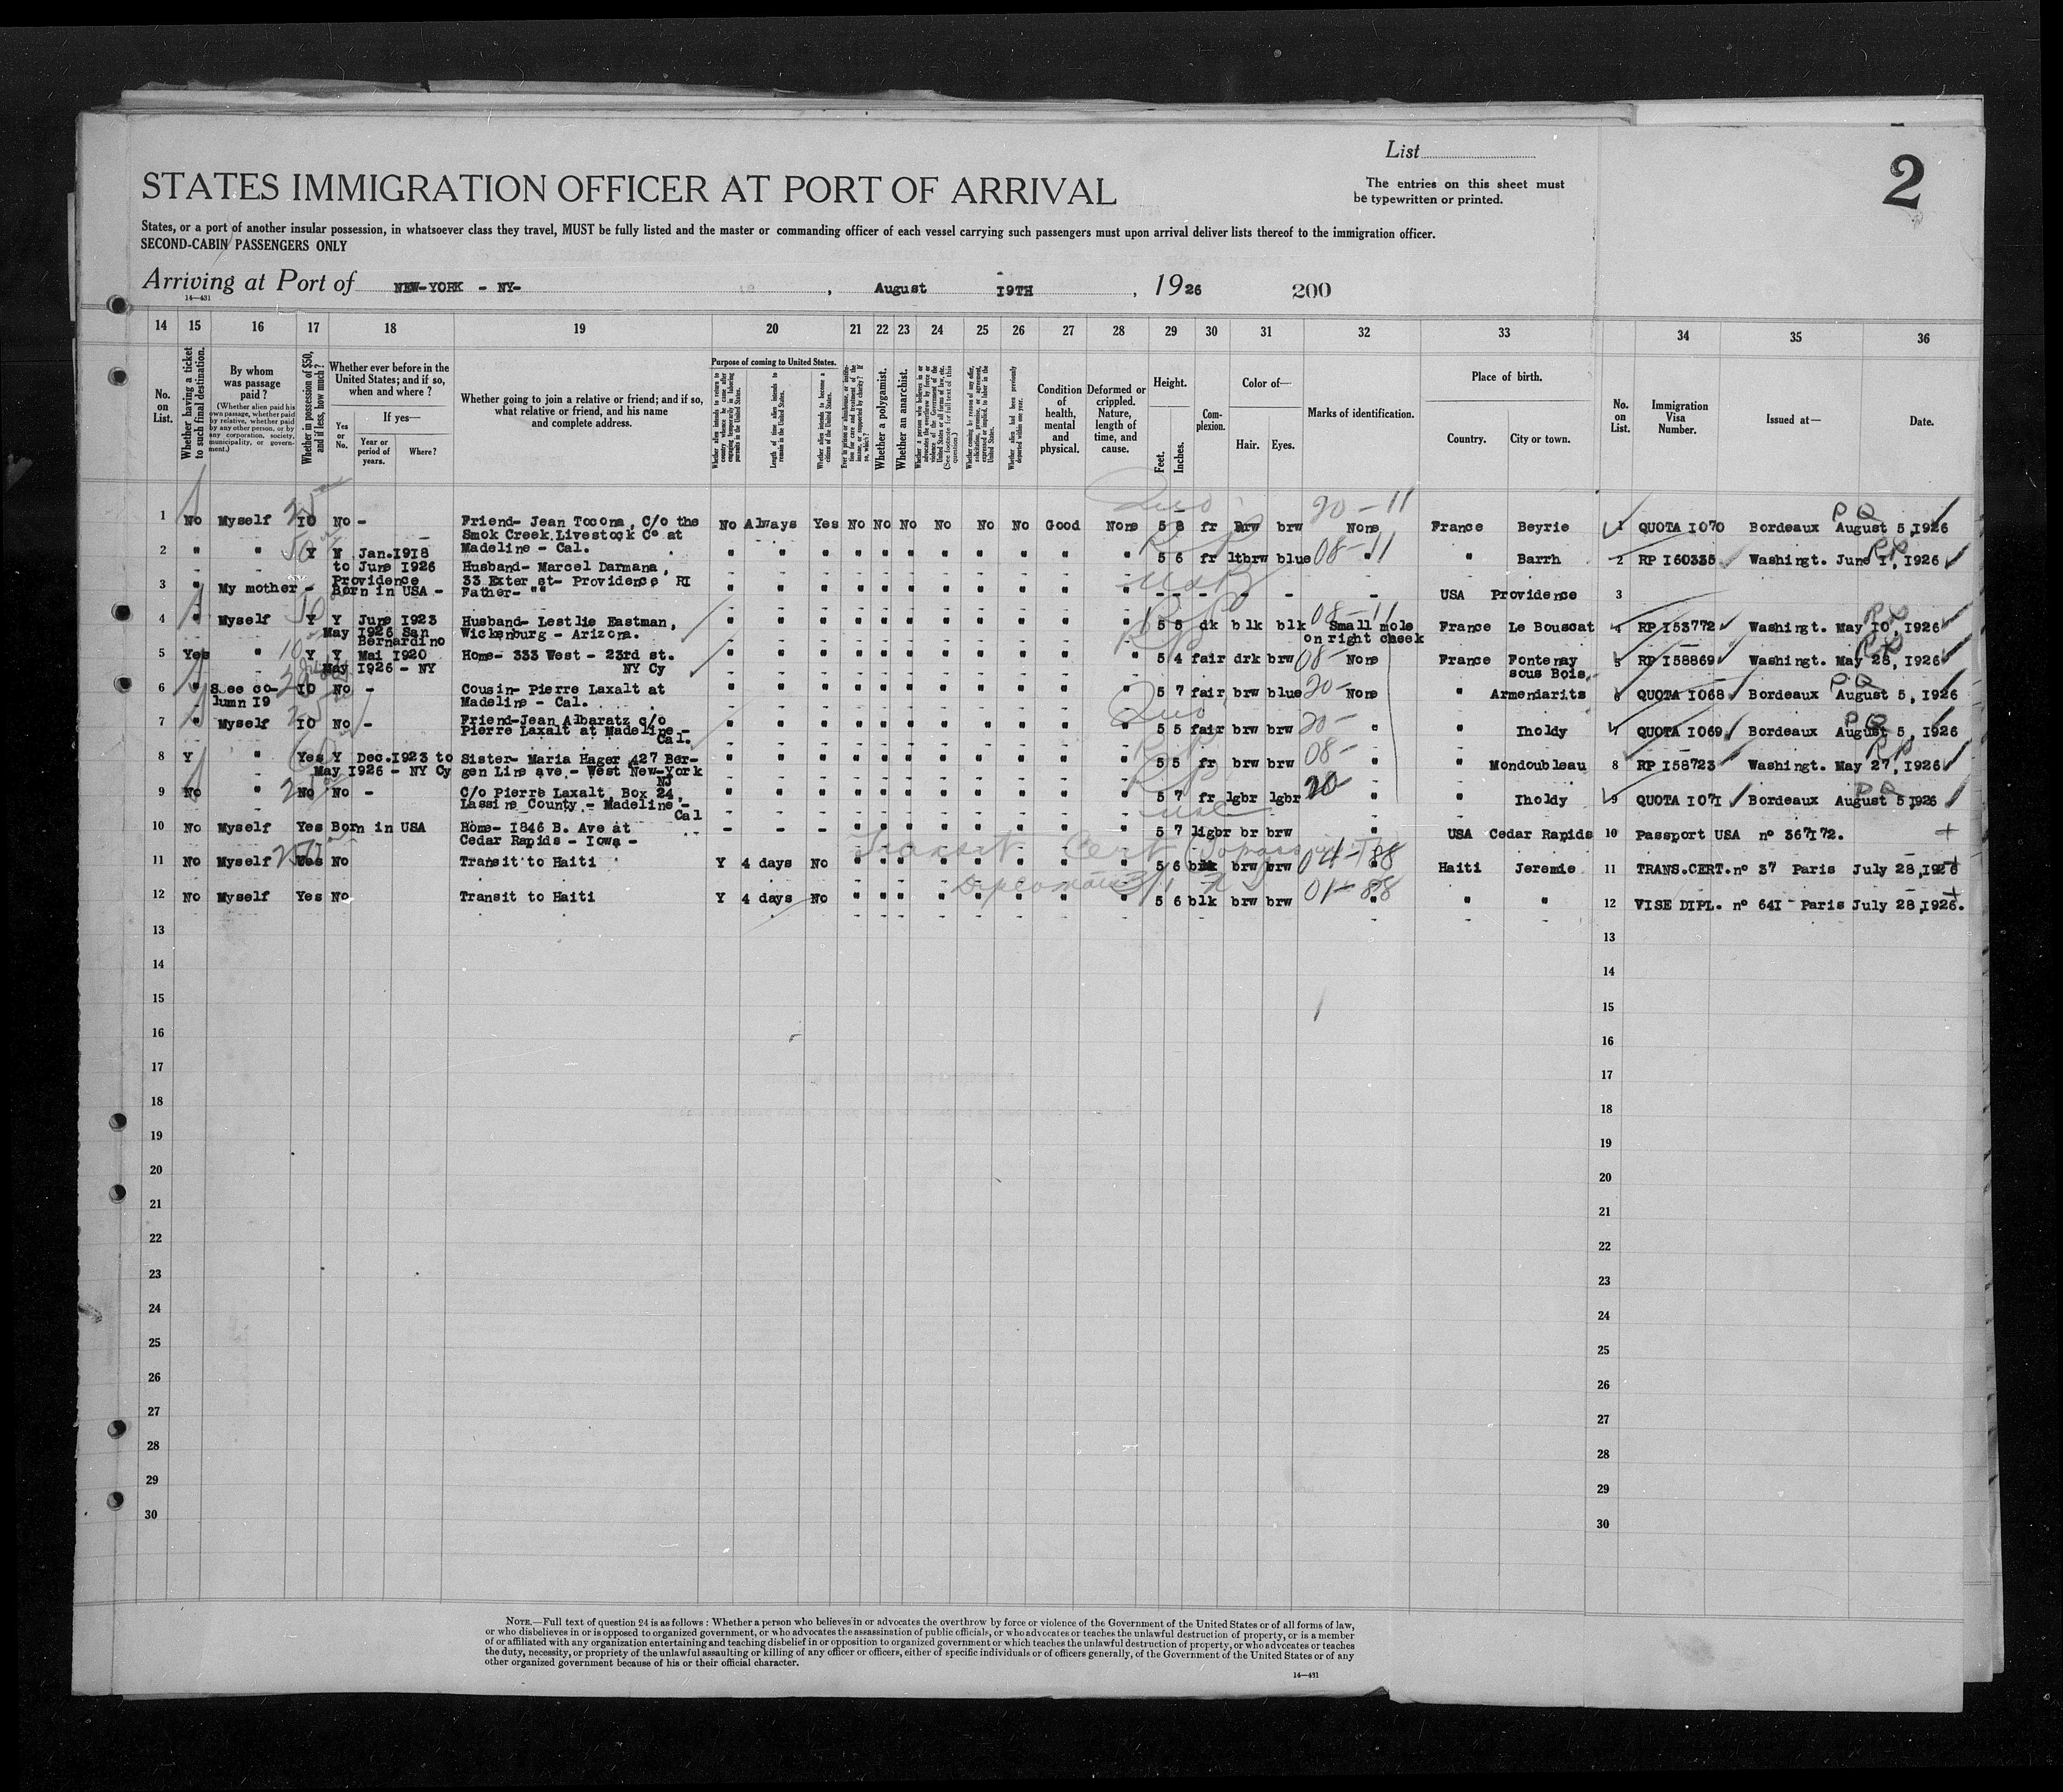 List
2
STATES IMMIGRATION OFFICER AT PORT OF ARRIVAL
The entries on this sheet must
be typewritten or printed.
States, or a port of another insular possession, in whatsoever class they travel, MUST be fully listed and the master or commanding officer of each vessel carrying such passengers must upon arrival deliver lists thereof to the immigration officer.
SECOND-CABIN PASSENGERS ONLY
Arriving at Port of NEW-YORK - NY- , August 19TH , 1926 200
14—431
14 15 16 17 18 19 20 21 22 23 24 25 26 27 28 29 30 31 32 33 34 35 36
No. on List.
Whether having a ticket to such final destination.
By whom was passage paid?
(Whether alien paid his own passage, whether paid by relative, whether paid by any other person, or by any corporation, society, municipality, or government.)
Whether in possession of $50, and if less, how much?
Whether ever before in the United States; and if so, when and where?
Yes or No.
If yes—
Year or period of years.
Where?
Whether going to join a relative or friend; and if so, what relative or friend, and his name and complete address.
Purpose of coming to United States.
Whether alien intends to return to country whence he came after engaging temporarily in laboring pursuits in the United States.
Length of time alien intends to remain in the United States.
Whether alien intends to become a citizen of the United States.
Whether a polygamist.
Whether an anarchist.
(See footnote for full text of this question.)
Whether alien had been previously deported within one year.
Condition of health, mental and physical.
Deformed or crippled. Nature, length of time, and cause.
Height.
Feet. Inches.
Complexion.
Color of—
Hair. Eyes.
Marks of identification.
Place of birth.
Country. City or town.
No. on List.
Immigration Visa Number.
Issued at—
Date.
20-11
1 No Myself 10 No - Friend- Jean Tocona, C/o the Smok Creek.Livestock Co at Madeline - Cal. No Always Yes No No No No No No Good None 5 8 fr Brw brw None France Beyrie 1 QUOTA 1070 Bordeaux August 5,1926
2 " " Y Y Jan.1918 to June 1926 Providence Husband- Marcel Darmana, 33 Exter st- Providence RI " " " " " " " " " " " 5 6 fr ltbrw blue 08-11 " " Barrh 2 RP 160335 Washingt. June 1, 1926
3 " My mother - Born in USA - Father- "" " " " " " " " " " " " - - - - - - USA Providence 3
4 " Myself Y Y June 1923 May 1926 San Bernardino Husband- Lestlie Eastman, Wickenburg - Arizona. " " " " " " " " " " " 5 5 dk blk blk 08-11 Small mole on right cheek France Le Bouscat 4 RP 153772 Washingt. May 10, 1926
5 Yes " Y Y Mai 1920 May 1926 - NY Home- 333 West - 23rd st. NY Cy " " " " " " " " " " " 5 4 fair drk brw 08- None France Fontenay sous Bois. 5 RP 158869 Washingt. May 28, 1926
6 " See column 19 10 No - Cousin- Pierre Laxalt at Madeline - Cal. " " " " " " " " " " " 5 7 fair brw blue 20- None " Armendarits 6 QUOTA 1068 Bordeaux August 5, 1926
7 " Myself 10 No - Friend-Jean Albaratz c/o Pierre Laxalt at Madeline - Cal. " " " " " " " " " " " 5 5 fair brw brw 20- " " Iholdy 7 QUOTA 1069 Bordeaux August 5, 1926
8 Y " Yes Y Dec.1923 to May 1926 - NY Cy Sister- Maria Hager 427 Bergen Line ave.- West New-York NJ " " " " " " " " " " " 5 5 fr brw brw 08- " " Mondoubleau 8 RP 158723 Washingt. May 27, 1926
9 No " No No - C/o Pierre Laxalt, Box 24, Lassine County - Madeline - Cal " " " " " " " " " " " 5 7 fr lgbr lgbr 20 " " Iholdy 9 QUOTA 1071 Bordeaux August 5 1926
10 No Myself Yes Born in USA Home- 1846 B. Ave at Cedar Rapids - Iowa - - - - " " " " " " " " 5 7 ligbr br brw " USA Cedar Rapids 10 Passport USA no 367172.
Transit Cert
11 No Myself Yes No Transit to Haiti Y 4 days No " " " " " " " " 5 6 blk brw brw 04-88 Haiti Jeremie 11 TRANS.CERT.no 37 Paris July 28,1926
12 No Myself Yes No Transit to Haiti Y 4 days No " " " " " " " " 5 6 blk brw brw 01-88 " " " 12 VISE DIPL. no 641 - Paris July 28,1926.
13 13
14 14
15 15
16 16
17 17
18 18
19 19
20 20
21 21
22 22
23 23
24 24
25 25
26 26
27 27
28 28
29 29
30 30
NOTE.—Full text of question 24 is as follows: Whether a person who believes in or advocates the overthrow by force or violence of the Government of the United States or of all forms of law,
or who disbelieves in or is opposed to organized government, or who advocates the assassination of public officials, or who advocates or teaches the unlawful destruction of property, or is a member
of or affiliated with any organization entertaining and teaching disbelief in or opposition to organized government or which teaches the unlawful destruction of property, or who advocates or teaches
the duty, necessity, or propriety of the unlawful assaulting or killing of any officer or officers, either of specific individuals or of officers generally, of the Government of the United States or of any
other organized government because of his or their official character.
14—431